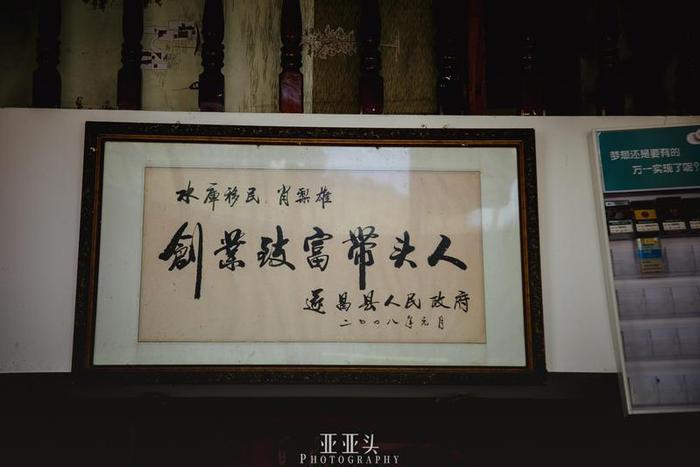 水库移民 肖梨雄
創業致富带头人
遂昌县人民政府
二〇〇八年元月
梦想还是要有的
万一实现了呢?
亚亚头
PHOTOGRAPHY